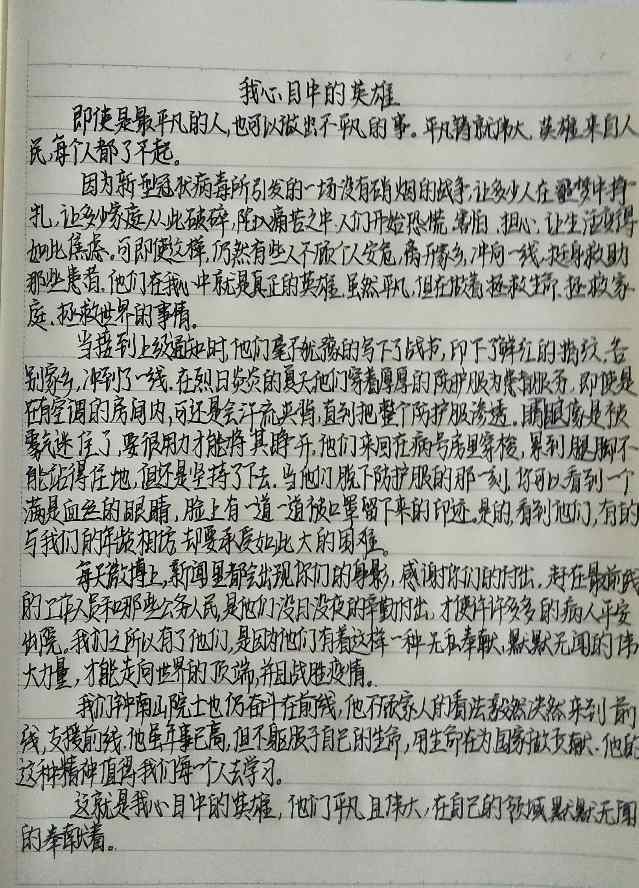 我心目中的英雄
即使是最平凡的人,也可以做出不平凡的事。平凡铸就伟大,英雄来自人
民,每个人都了不起。
因为新型冠状病毒所引发的一场没有硝烟的战争,让多少人在噩梦中挣
扎,让多少家庭从此破碎,陷入痛苦之中,人们开始恐慌、害怕、担心,让生活变得
如此焦虑。可即使这样,仍然有些人不顾个人安危,离开家乡,冲向一线,挺身救助
那些患者,他们在我心中就是真正的英雄,虽然平凡,但在做着拯救生命、拯救家
庭、拯救世界的事情。
当接到上级通知时,他们毫不犹豫的写下了战书,印下了鲜红的指纹,告
别家乡,冲到了一线。在烈日炎炎的夏天他们穿着厚厚的防护服为患者服务,即使是
在有空调的房间内,可还是会汗流夹背,直到把整个防护服渗透。眼睛像是被
雾气迷住了,要很用力才能将其睁开,他们来回在病号房里穿梭,累到腿脚不
能站得住地,但还是坚持了下去。当他们脱下防护服的那一刻,你可以看到一个
满是血丝的眼睛,脸上有一道一道被口罩留下来的印迹。是的,看到他们,有的
与我们的年龄相仿,却要承受如此大的困难。
每天微博上,新闻里都会出现你们的身影,感谢你们的付出,赶在最前线
的工作人员和那些公务人民,是他们没日没夜的辛勤付出,才使许许多多的病人平安
出院。我们之所以有了他们,是因为他们有着这样一种无私奉献、默默无闻的伟
大力量,才能走向世界的顶端,并且战胜疫情。
我们钟南山院士也仍奋斗在前线,他不顾家人的看法毅然决然来到前
线,支援前线,他虽年事已高,但不屈服于自己的生命,用生命在为国家做贡献,他的
这种精神值得我们每一个人去学习。
这就是我心目中的英雄,他们平凡且伟大,在自己的领域默默无闻
的奉献着。